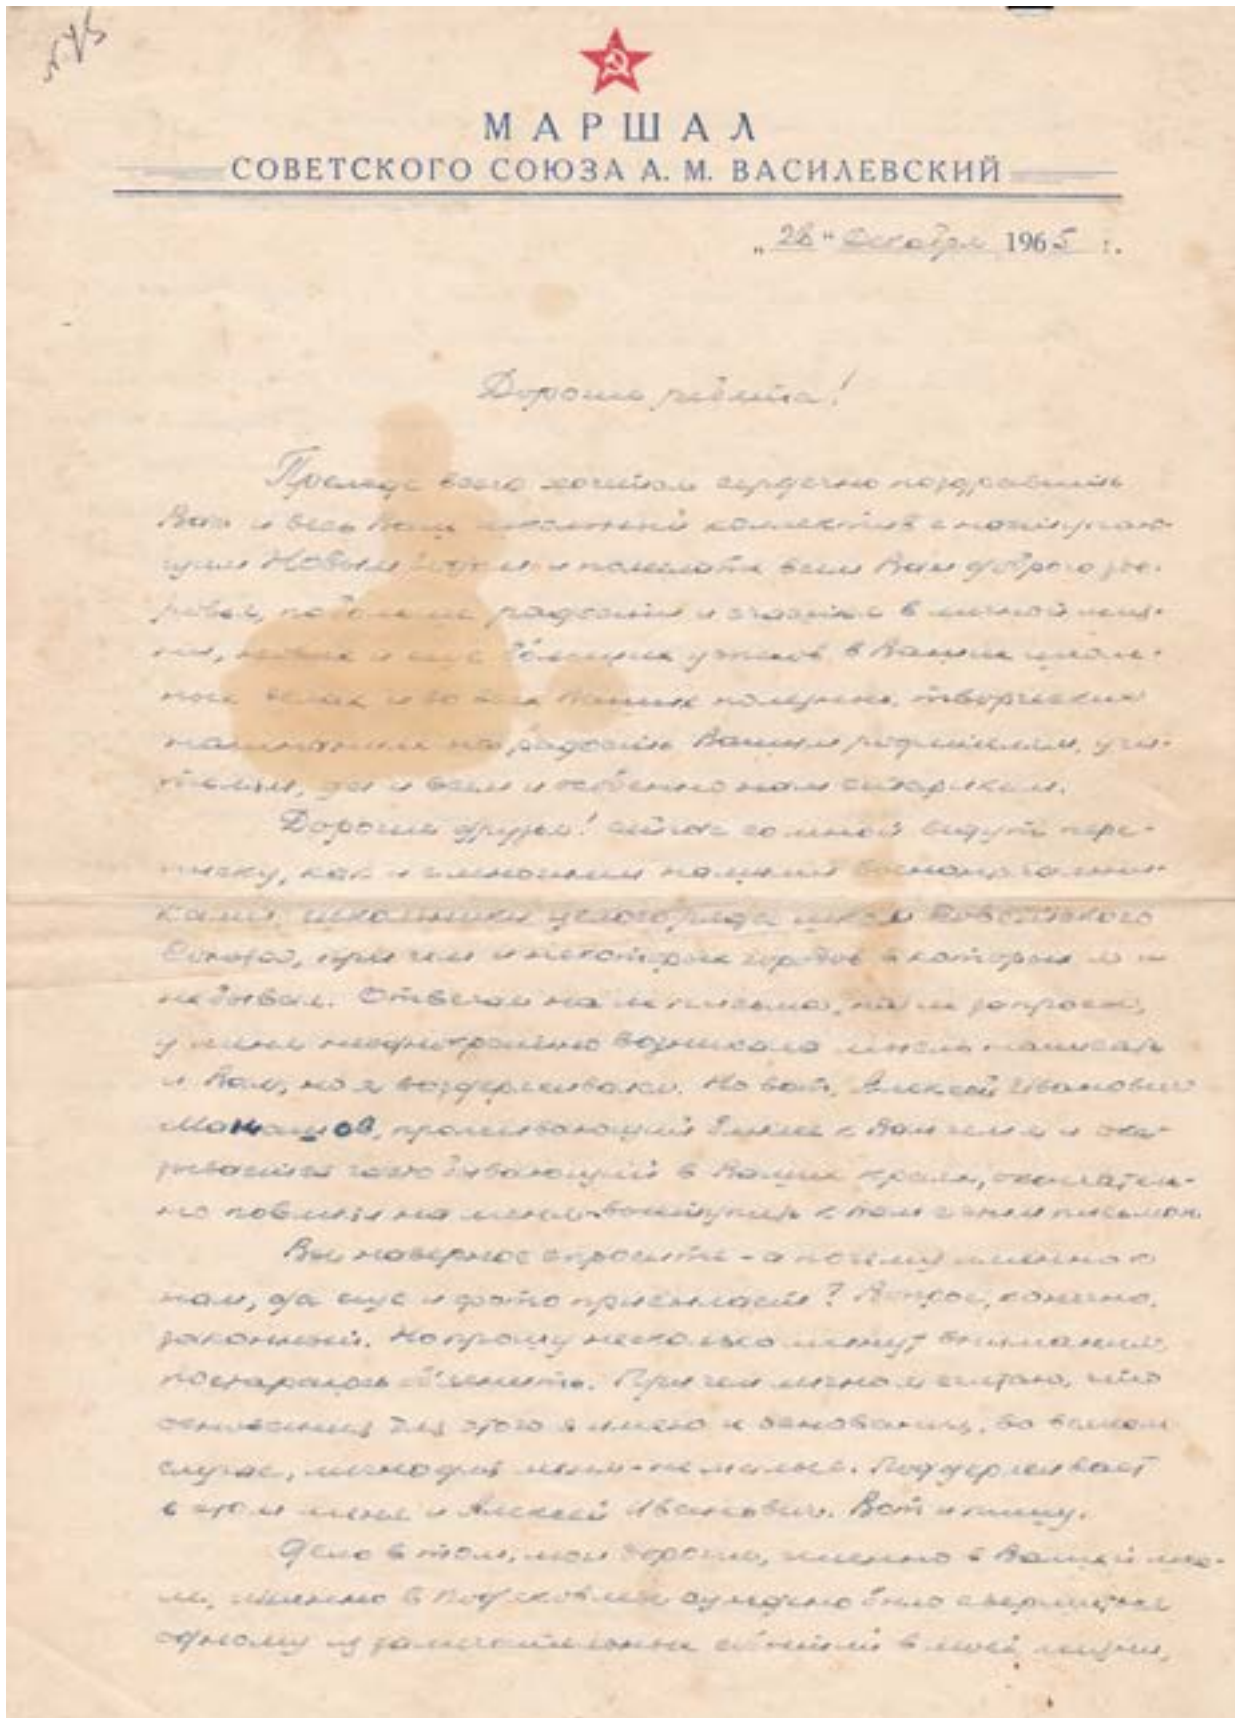 МАРШАЛ
СОВЕТСКОГО СОЮЗА А. М. ВАСИЛЕВСКИЙ
„28“ декабря 1965 г.
Дорогие ребята!
Прежде всего хочется сердечно поздравить
Вас и весь Ваш школьный коллектив с наступаю-
щим Новым годом и пожелать всем Вам доброго здо-
ровья, побольше радости и счастья в личной жиз-
ни, новых и еще больших успехов в Ваших школь-
ных делах и во всех Ваших полезных творческих
начинаниях на радость Вашим родителям, учи-
телям, да и всем и особенно нам старикам.
Дорогие друзья! сейчас со мной ведут пере-
писку, как и с многими нашими военачальни-
ками, школьники целого ряда школ Советского
Союза, при чем и некоторых городов в которых я и
не бывал. Отвечая на их письма, на их запросы,
у меня неоднократно возникала мысль написать
и Вам, но я воздерживался. Но вот, Алексей Иванович
проживающий ближе к Вам и ока-
зывается часто бывающий в Ваших краях, окончатель-
но повлиял на меня вступить к Вам с этим письмом.
Вы наверное спросите - а почему именно
нам, да еще и фото присылает? Вопрос, конечно,
законный. Но прошу несколько минут внимания,
постараюсь объяснить. Причем лично я считаю, что
для этого я имею и основания, во всяком
случае, лично для меня - не малые. Поддерживает
в этом меня и Алексей Иванович. Вот и пишу.
Дело в том, мои дорогие, именно в Вашей шко-
ле, именно в суждено было свершиться
одному из замечательных событий в моей жизни,